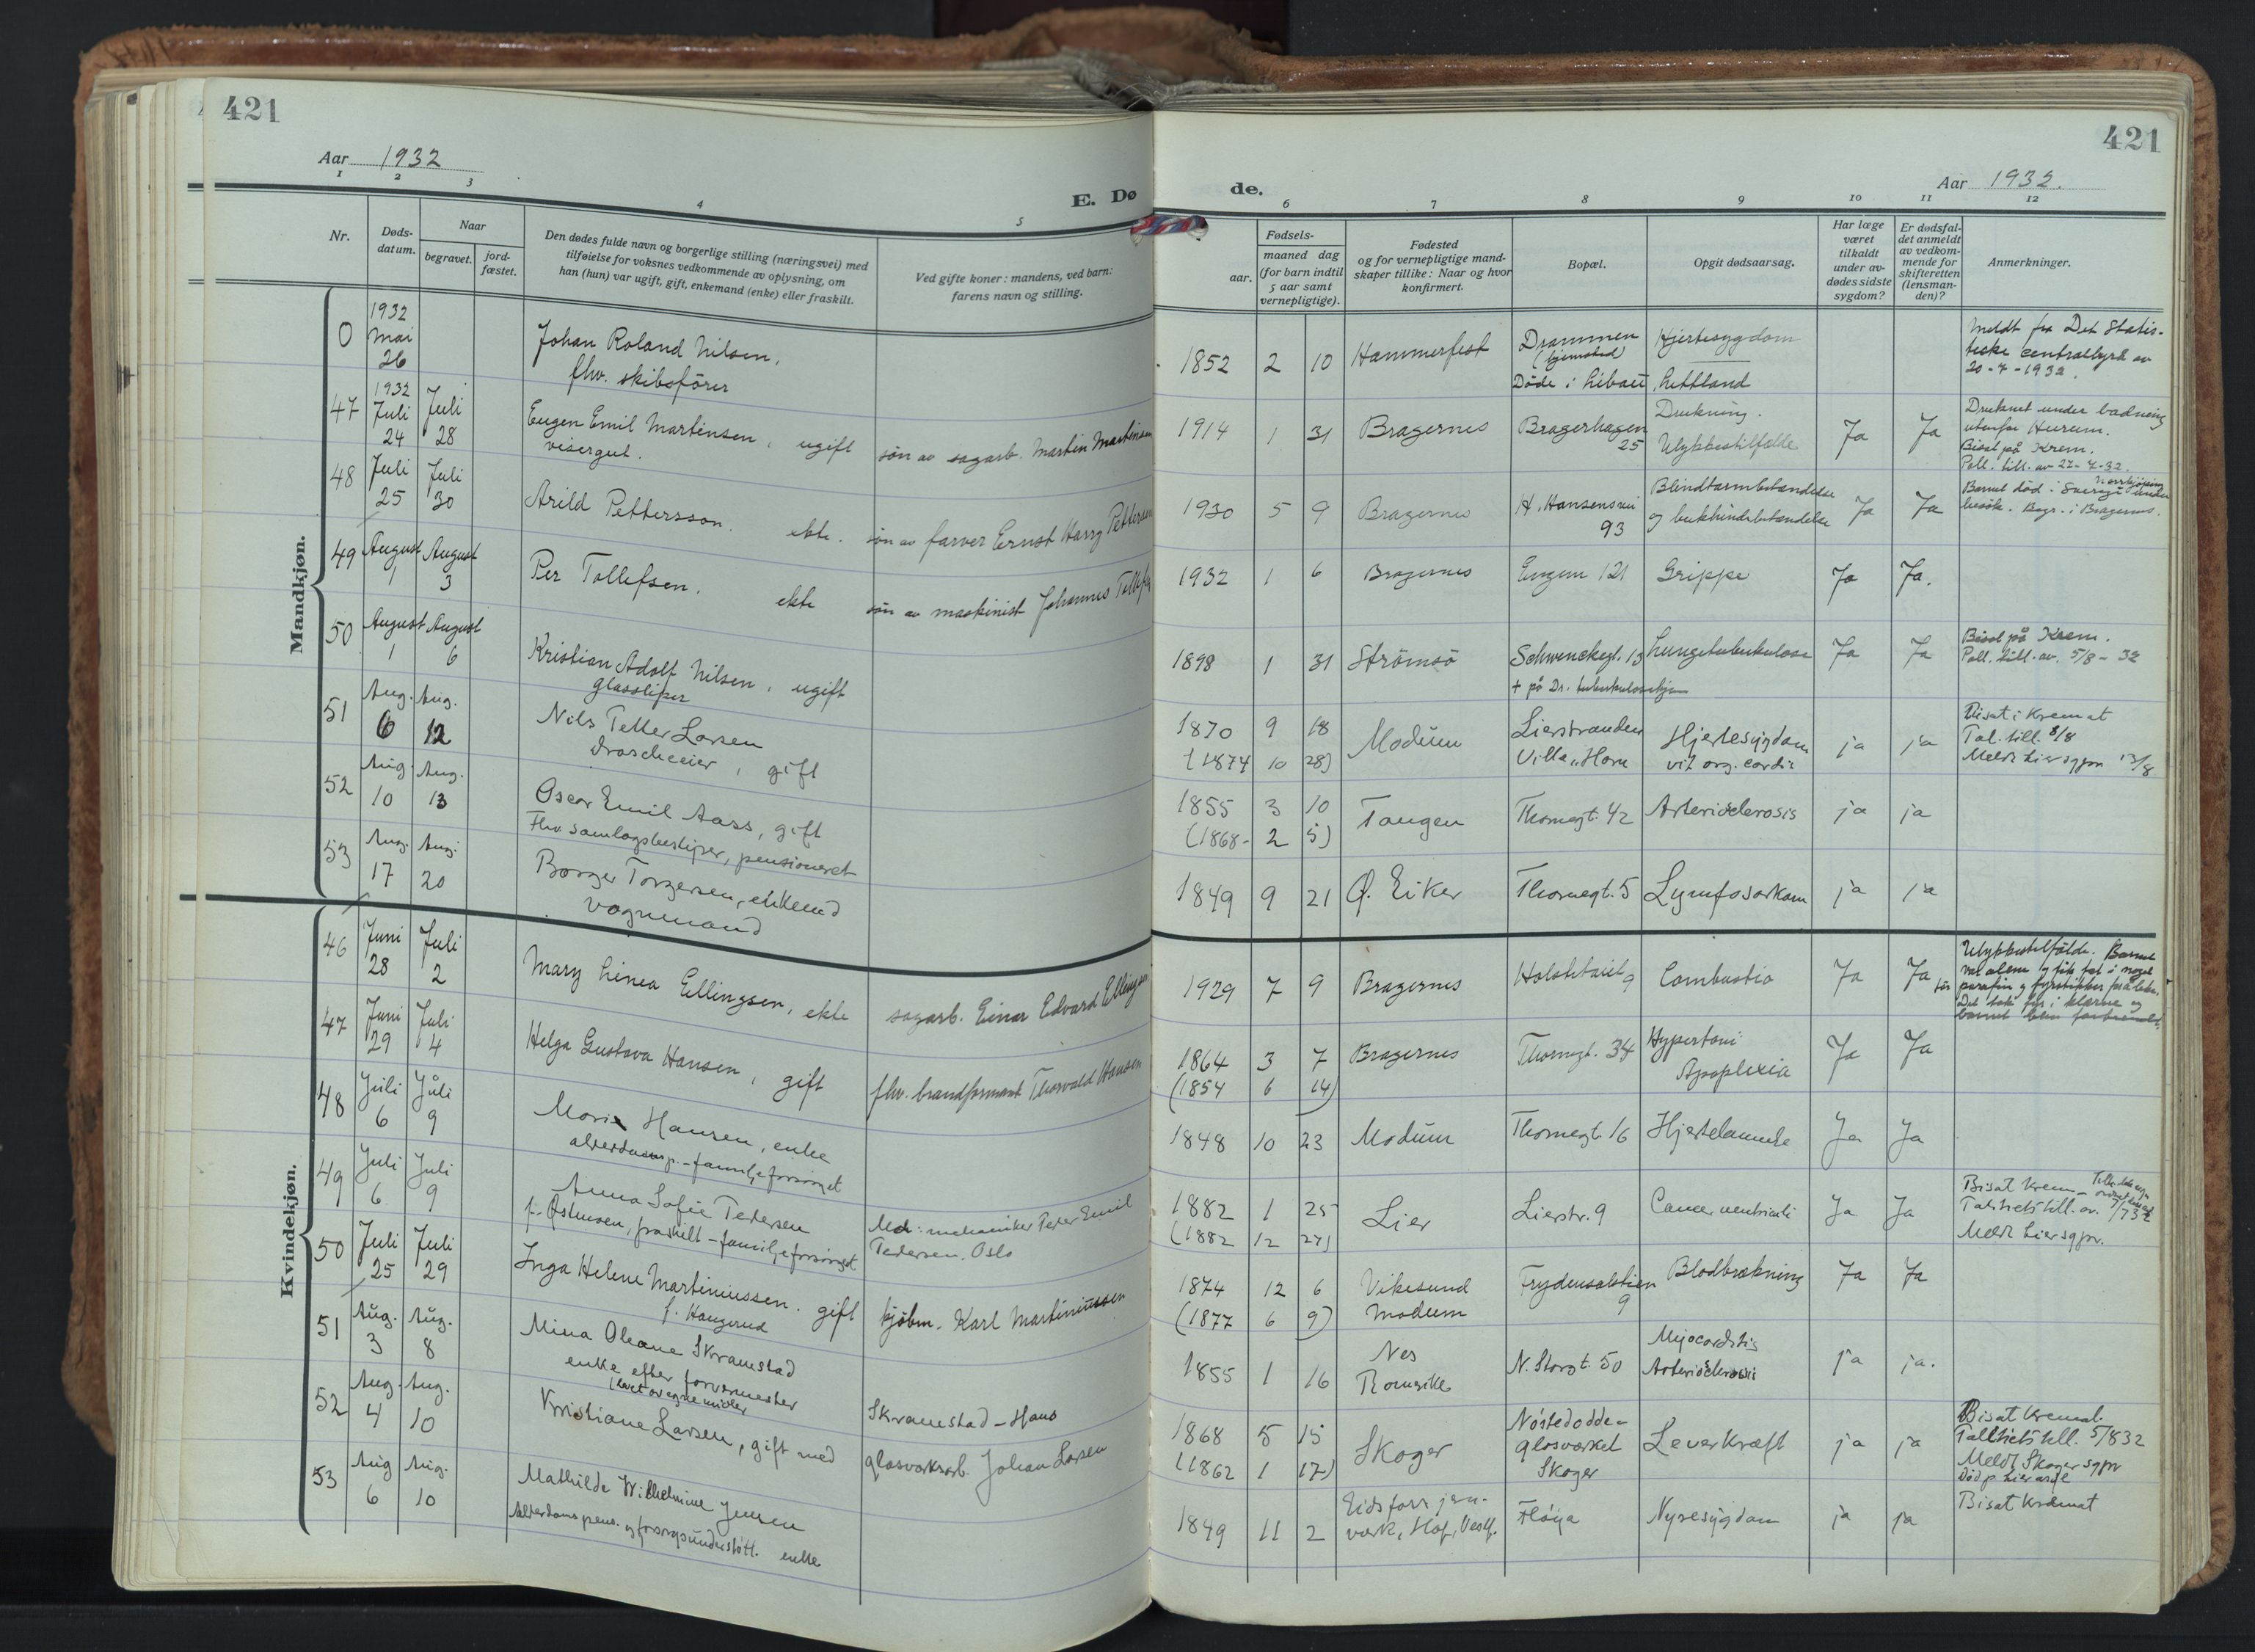 421
Aar 1932
1 2 3 4 5
E. Dø
Nr.
Døds-
datum.
Naar
begravet.
jord-
fæstet.
Den dødes fulde navn og borgerlige stilling (næringsvei) med
tilføielse for voksnes vedkommende av oplysning, om
han (hun) var ugift, gift, enkemand (enke) eller fraskilt.
Ved gifte koner: mandens, ved barn:
farens navn og stilling.
Mandkjøn.
0 1932 Mai 26
Johan Roland Nilsen,
fhv. skibsfører
47 1932 Juli 24 Juli 28
Eugen Emil Martinsen, ugift søn av sagarb. Martin Martinsen
visergut.
48 Juli 25 Juli 30
Arild Pettersson. ekte. søn av farver Ernst Harry Pettersson
49 August 1 August 3
Per Tollefsen. ekte søn av maskinist Johannes Tollefsen
50 August 1 August 6
Kristian Adolf Nilsen, ugift
glassliper
51 Aug. 6 Aug. 12
Nils Petter Larsen
droscheeier, gift
52 Aug. 10 Aug. 13
Oscar Emil Aass, gift
Fhv. samlagsbestyrer, pensioneret
53 Aug. 17 Aug. 20
Borger Torgersen, enkemd
vognmand
Kvindekjøn.
46 Juni 28 Juli 2
Mary Linea Ellingsen, ekte sagarb. Einar Edvard Ellingsen
47 Juni 29 Juli 4
Helga Gustava Hansen, gift fhv. brandformand Thorvald Hansen
48 Juli 6 Juli 9
Marie Hansen, enke
alderdomsp. - familjeforsørget
49 Juli 6 Juli 9
Anna Sofie Pedersen
f. Østmoen, fraskilt - familjeforsørget
Md: mekaniker Peter Emil
Pedersen. Oslo
50 Juli 25 Juli 29
Inga Helene Martiniussen. gift kjøbm. Karl Martiniussen
f. Haugerud
51 Aug. 3 Aug. 8
Mina Oleane Skramstad
enke efter farvermester
levet av egne midler
Skramstad - Hans
52 Aug. 4 Aug. 10
Kristiane Larsen, gift med glasværksarb. Johan Larsen
53 Aug 6 Aug. 10
Mathilde Wilhelmine Jensen
Alderdoms pens. og forsorgsunderstøtt. enke
421
de.
Aar 1932.
6 7 8 9 10 11 12
Fødsels-
aar.
maaned dag
(for barn indtil
5 aar samt
vernepligtige).
Fødested
og for vernepligtige mand-
skaper tillike: Naar og hvor
konfirmert.
Bopæl.
Opgit dødsaarsag.
Har læge
været
tilkaldt
under av-
dødes sidste
sygdom?
Er dødsfal-
det anmeldt
av vedkom-
mende for
skifteretten
(lensman-
den)?
Anmerkninger.
1852 2 10 Hammerfest
Drammen
(hjemsted)
Døde i Libau, Lettland
Hjertesygdom
Meldt fra Det Statis-
tiske Centralbyrå av
20-7-1932.
1914 1 31 Bragernes
Bragerhagen
25
Drukning.
Ulykkestilfælde
Ja Ja
Druknet under badning
utenfor Hurum.
Bisat på Krem.
Poli. till. av 27-7-32.
1930 5 9 Bragernes
H. Hansensvei
93
Blindtarmbetændelse
og bukhindebetændelse
Ja Ja
Barnet død i Sverige Norrkjøping under
besøk. Begr. i Bragernes.
1932 1 6 Bragernes Engene 121 Grippe Ja Ja.
1898 1 31 Strømsø
Schwenckegt. 13
+ på Dr. tuberkulosehjem
Lungetuberkulose
Ja Ja
Bisat på Krem.
Poli. till. av. 5/8-32
1870 9 18
(1874 10 28)
Modum
Lierstranden
Villa "Horn
Hjertesygdom
vit. org. cordis
ja ja
Bisat i Kremat
Pol. till. 8/8
Meldt Lier sgpr 13/8
1855 3 10
(1868- 2 5)
Tangen Thornegt. 42 Arteriosclerosis ja ja
1849 9 21 Ø. Eiker Thornegt. 5 Lymfosarkom ja ja
1929 7 9 Bragernes Holstebakt 9 Combustio Ja Ja
Ulykkestilfælde. Barnet
var alene og fik fat i noget
parafin og fyrstikker
Det tok fyr i klærne og
barnet blev forbrændt.
1864 3 7
(1854 6 14)
Bragernes Thornegt. 34
Hypertoni
Apoplexia
Ja Ja
1848 10 23 Modum Thornegt. 16 Hjertelammelse Ja Ja
1882 1 25
(1882 12 27)
Lier Lierstr. 9 Cancer ventriculi Ja Ja
Bisat Krem -
Politiets till. av. 7/7 32
Meldt Lier sgpr.
1874 12 6
(1877 6 9)
Vikesund
Modum
Frydensalstien
9
Blodbrækning
Ja Ja
1855 1 16
Nes
Romerike
N. Storgt. 50
Myocarditis
Arteriosclerosis
ja ja.
1868 5 15
(1862 1 17)
Skoger
Nøstedodden
glasværket
Skoger
Leverkræft
ja ja
Bisat Kremat.
Politiets till. 5/8 32
Meldt Skoger sgpr
Død p. Lier asyl
1849 11 2
Eidsfoss jern-
værk, Hof, Vestf.
Fløya Nyresygdom ja ja
Bisat Kremat